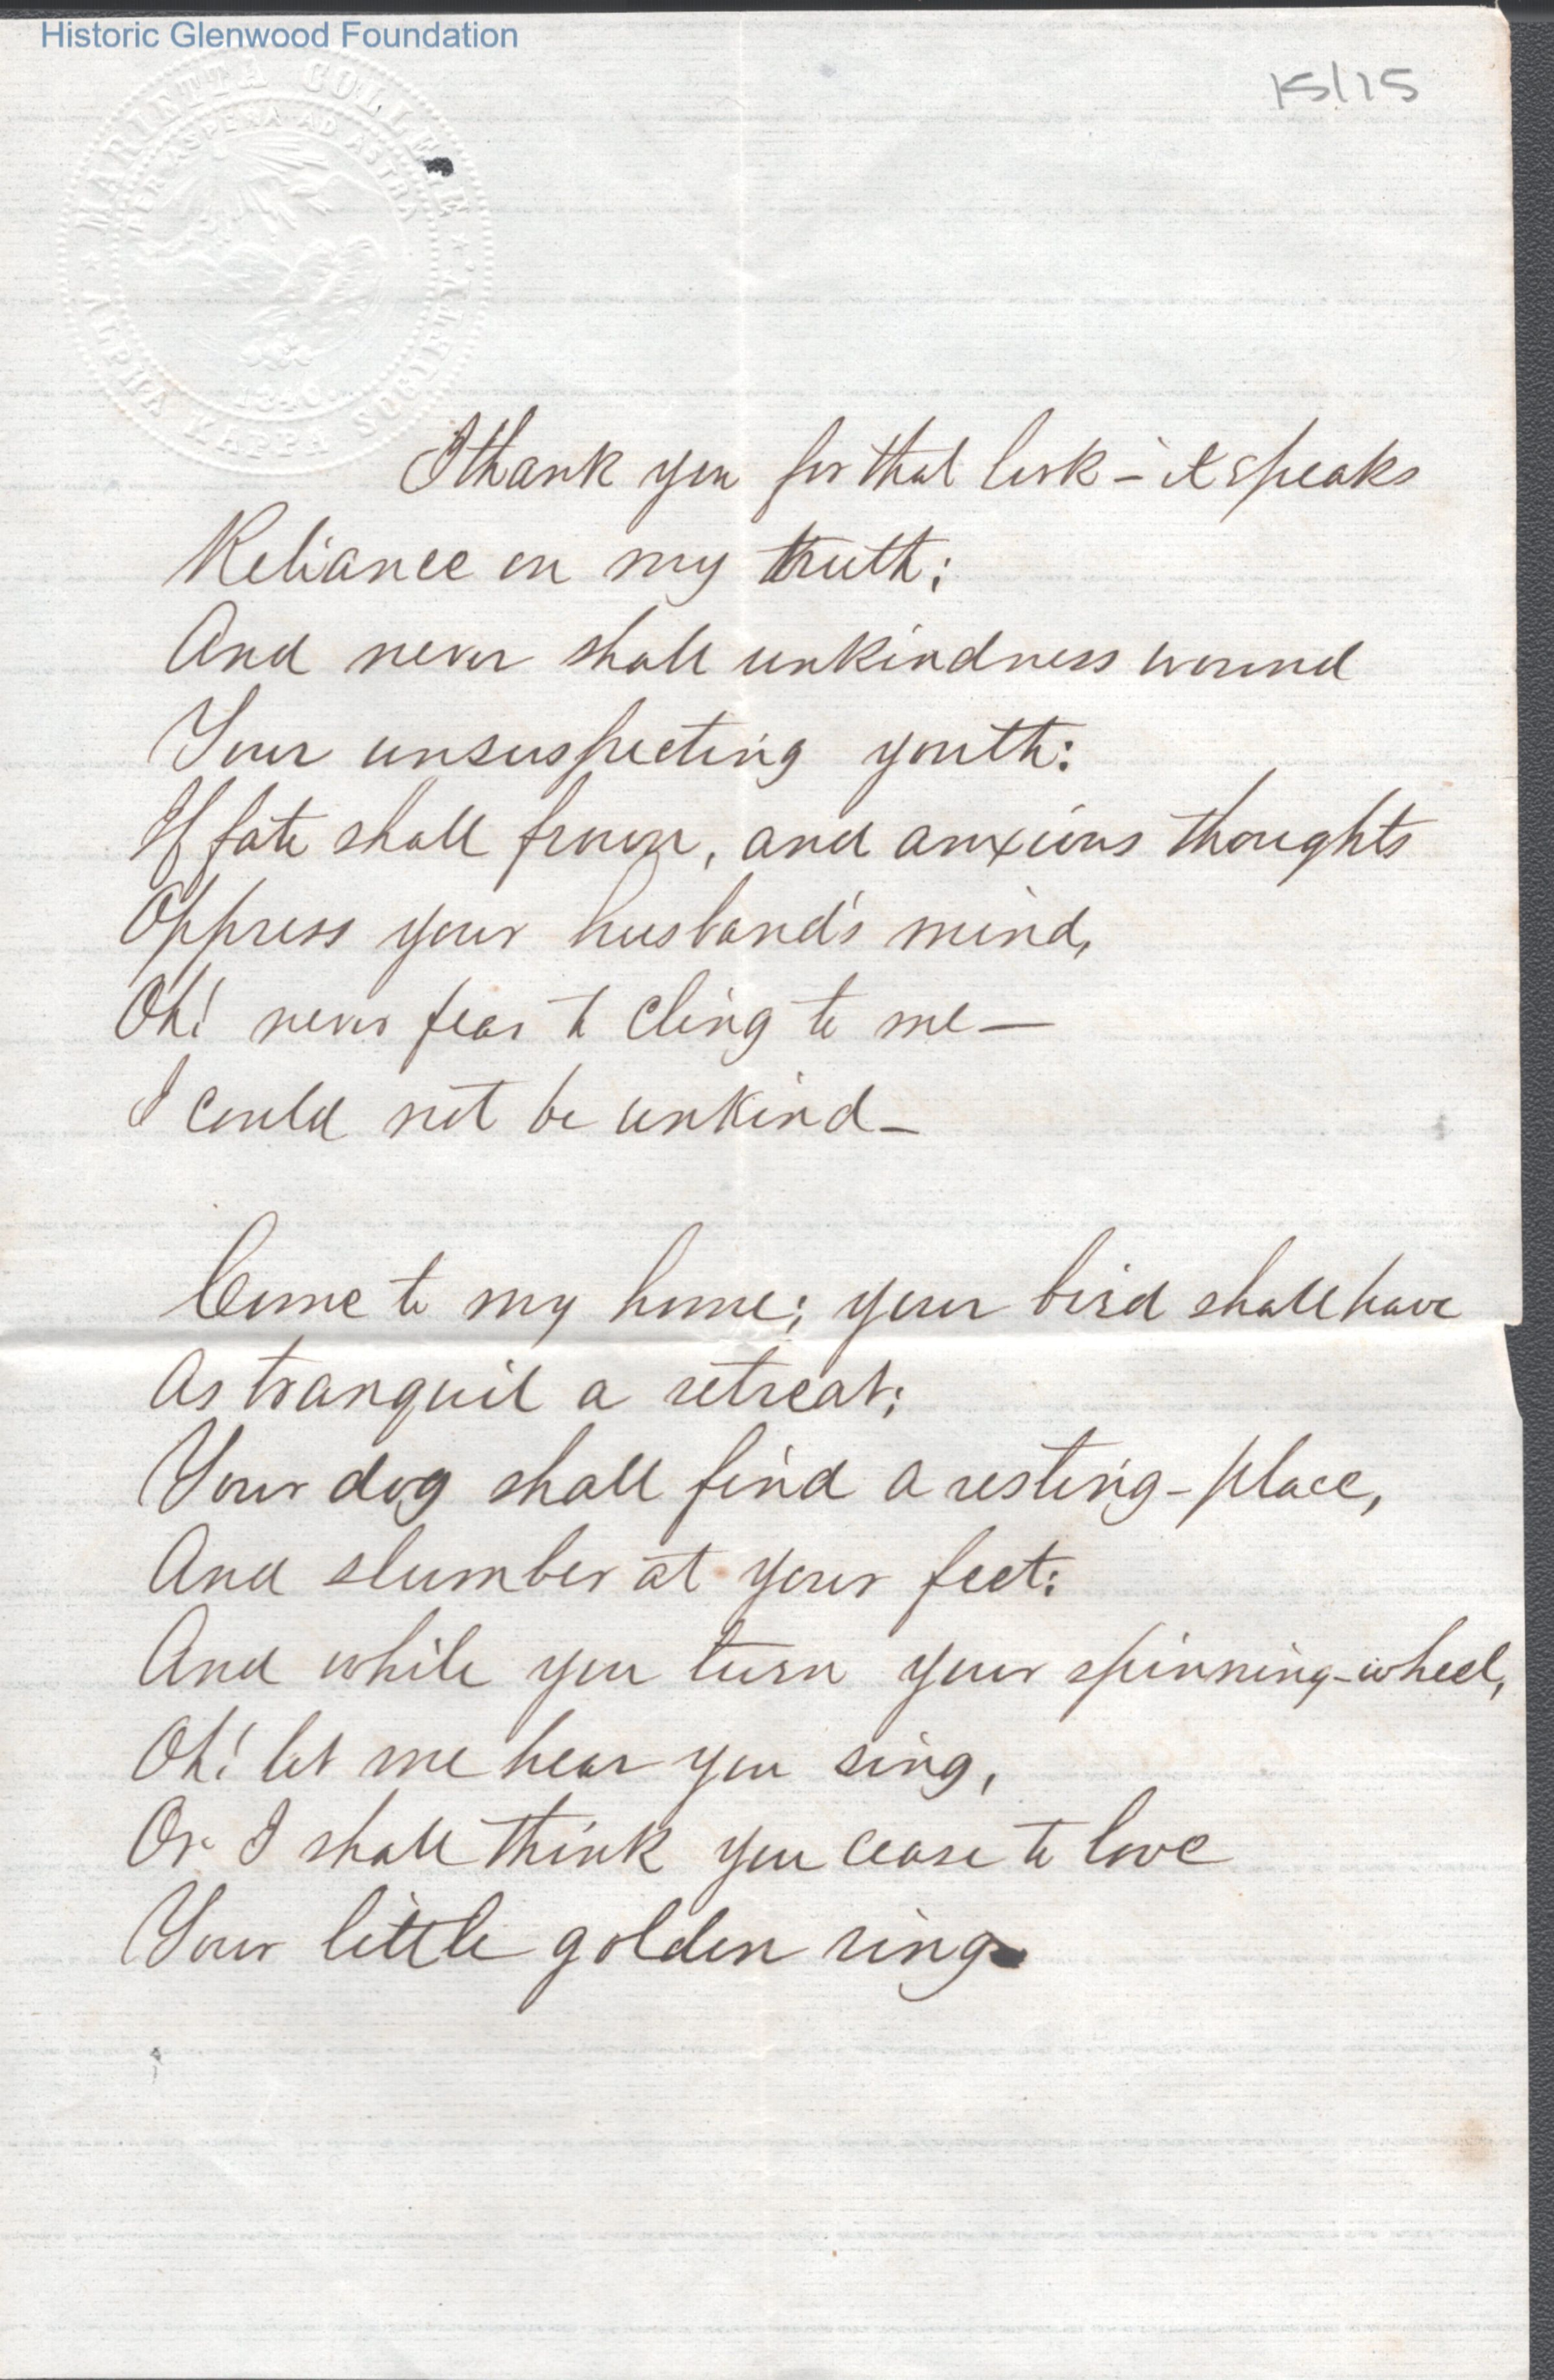 Historic Glenwood Foundation
15/15
MARIETTA COLLEGE
PER ASPERA AD ASTRA
1840.
ALPHA KAPPA SOCIETY
I thank you for that look – it speaks
Reliance on my truth;
And never shall unkindness wound
Your unsuspecting youth:
If fate shall frown, and anxious thoughts
Oppress your husband's mind,
Oh! never fear to cling to me —
I could not be unkind –
Come to my home; your bird shall have
As tranquil a retreat;
Your dog shall find a resting-place,
And slumber at your feet:
And while you turn your spinning-wheel,
Oh! let me hear you sing,
Or I shall think you cease to love
Your little golden ring.